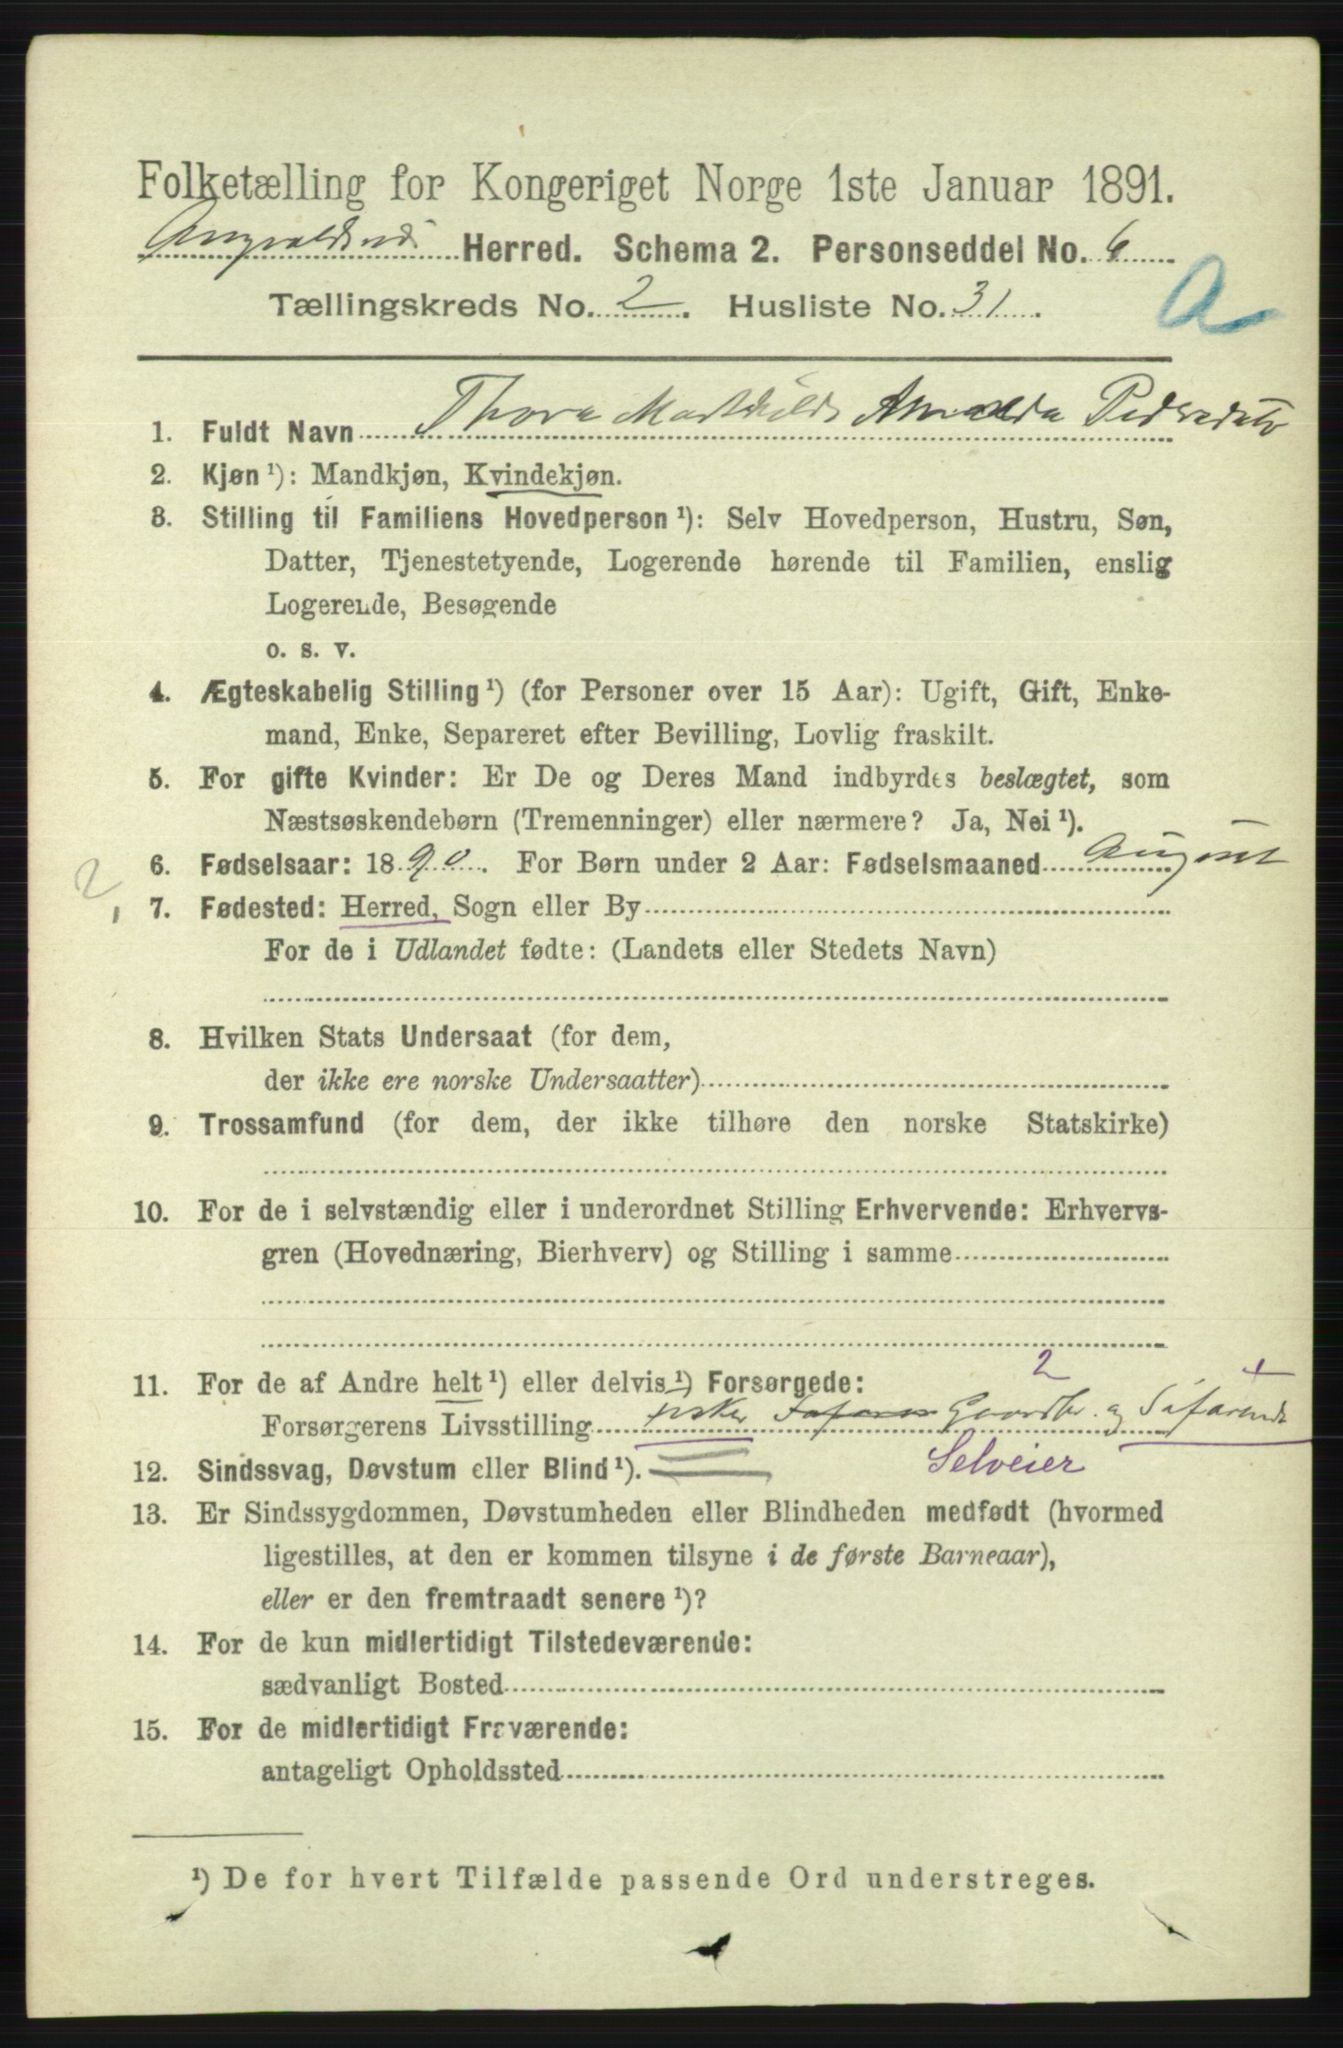 Folketælling for Kongeriget Norge 1ste Januar 1891.
Herred. Schema 2. Personseddel No. 6
Tællingskreds No. 2. Husliste No. 31.
A
1. Fuldt Navn Thora Mathilde Amalda Pedersdatr
2. Kjøn ¹): Mandkjøn, Kvindekjøn.
3. Stilling til Familiens Hovedperson ¹): Selv Hovedperson, Hustru, Søn,
Datter, Tjenestetyende, Logerende hørende til Familien, enslig
Logerende, Besøgende
o. s. v.
4. Ægteskabelig Stilling ¹) (for Personer over 15 Aar): Ugift, Gift, Enke-
mand, Enke, Separeret efter Bevilling, Lovlig fraskilt.
5. For gifte Kvinder: Er De og Deres Mand indbyrdes beslægtet, som
Næstsøskendebørn (Tremenninger) eller nærmere? Ja, Nei ¹).
6. Fødselsaar: 1890. For Børn under 2 Aar: Fødselsmaaned August
2,
7. Fødested: Herred, Sogn eller By
For de i Udlandet fødte: (Landets eller Stedets Navn)
8. Hvilken Stats Undersaat (for dem,
der ikke ere norske Undersaatter)
9. Trossamfund (for dem, der ikke tilhøre den norske Statskirke)
10. For de i selvstændig eller i underordnet Stilling Erhvervende: Erhvervs-
gren (Hovednæring, Bierhverv) og Stilling i samme
2 +
11. For de af Andre helt ¹) eller delvis ¹) Forsørgede:
Forsørgerens Livsstilling Fisker Gaardbr. og Søfarende
Selveier
12. Sindssvag, Døvstum eller Blind ¹).
13. Er Sindssygdommen, Døvstumheden eller Blindheden medfødt (hvormed
ligestilles, at den er kommen tilsyne i de første Barneaar),
eller er den fremtraadt senere ¹)?
14. For de kun midlertidigt Tilstedeværende:
sædvanligt Bosted
15. For de midlertidigt Fraværende:
antageligt Opholdssted
¹) De for hvert Tilfælde passende Ord understreges.